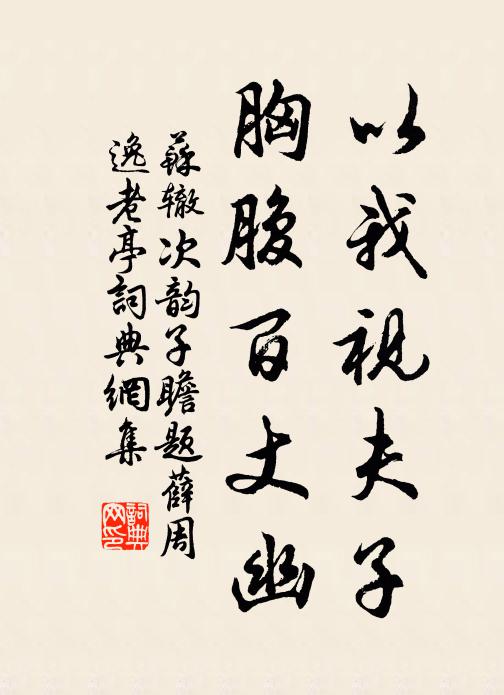 以我視夫子
胸腹百丈幽
蘇辙次韵子瞻题薛周
逸老亭詞典網集
詞典
网印